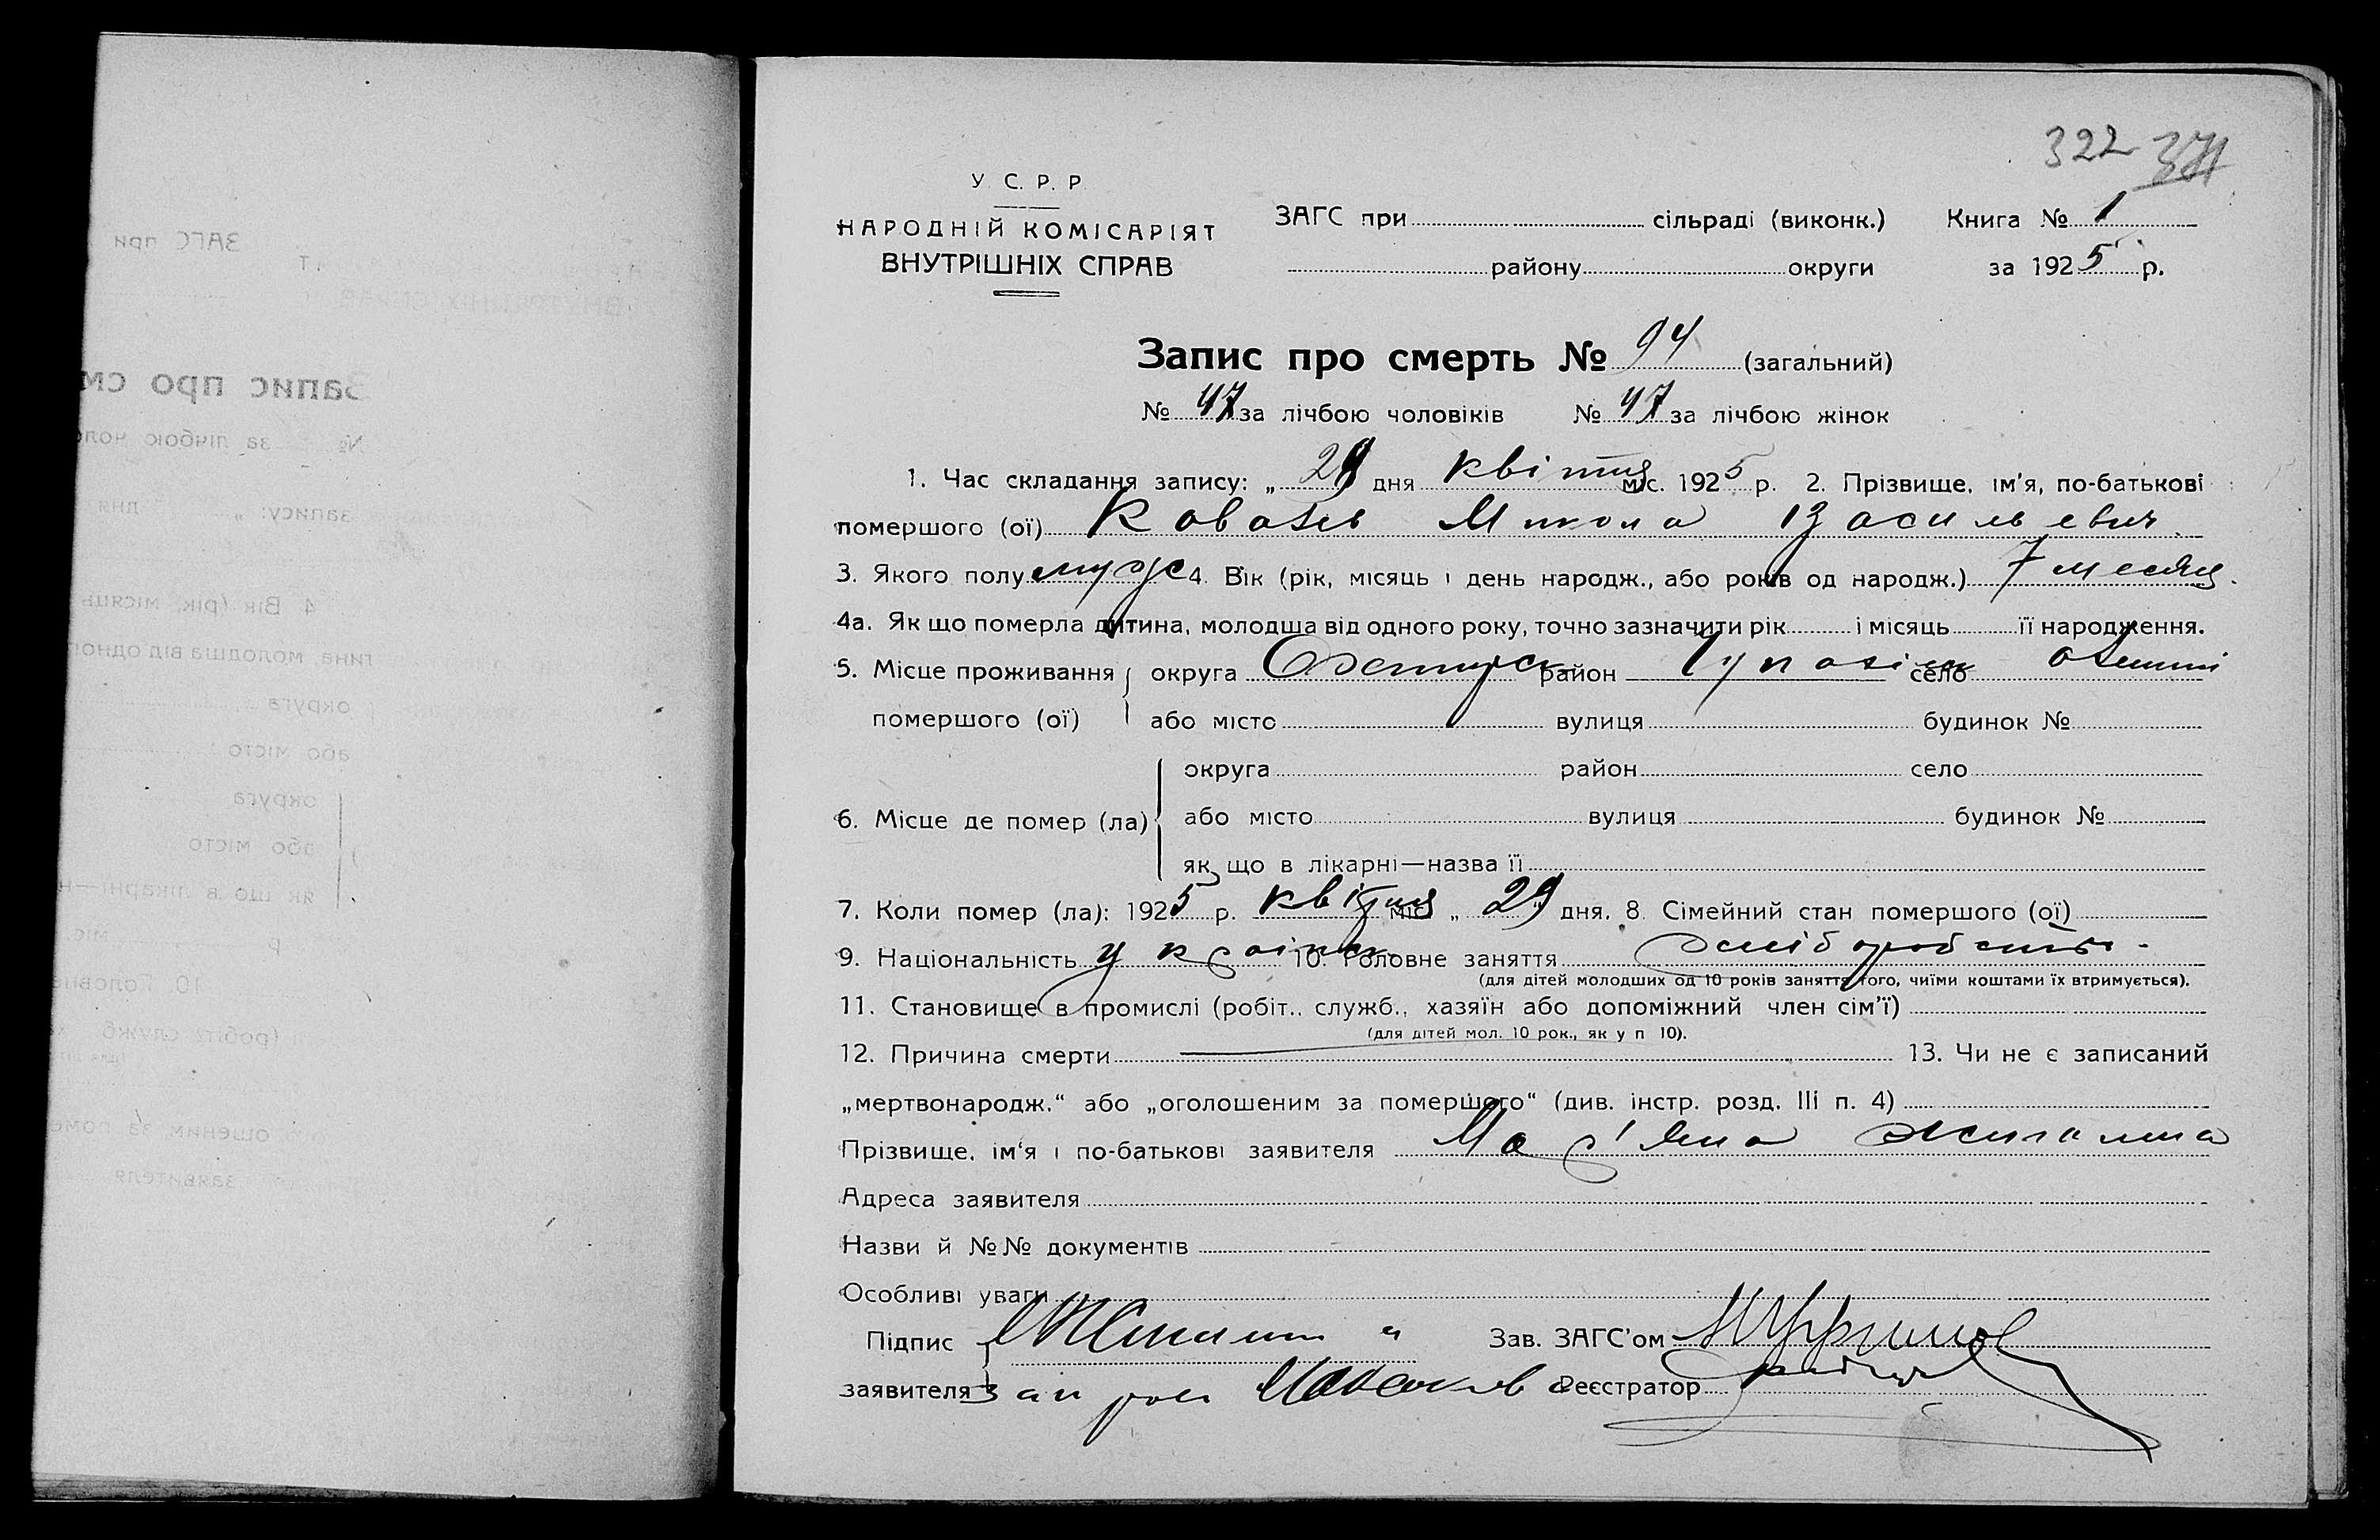 322 371
У. С. Р. Р.
НАРОДНІЙ КОМІСАРІЯТ
ВНУТРІШНІХ СПРАВ
ЗАГС при сільраді (виконк.) Книга № 1
району округи за 1925 р.
Запис про смерть № 94 (загальний)
№ 47 за лічбою чоловіків № 47 за лічбою жінок
1. Час складання запису: „ 29 дня квітня міс. 1925 р. 2. Прізвище, ім'я, по-батькові
помершого (ої) Микола Васильевич
3. Якого полу муж 4. Вік (рік, місяць і день народж., або років од народж.) 7 месяц.
4а. Як що померла дитина, молодша від одного року, точно зазначити рік і місяць її народження.
5. Місце проживання округа район село
помершого (ої) або місто вулиця будинок №
округа район село
6. Місце де помер (ла) або місто вулиця будинок №
як що в лікарні—назва її
7. Коли помер (ла): 1925 р. квітня міс. „ 29 " дня. 8. Сімейний стан помершого (ої)
9. Національність українец 10. Головне заняття
(для дітей молодших од 10 років заняття того, чиїми коштами їх втримується).
11. Становище в промислі (робіт., служб., хазяїн або допоміжний член сім'ї)
(для дітей мол. 10 рок., як у п 10).
12. Причина смерти 13. Чи не є записаний
„мертвонародж.“ або „оголошеним за помершого“ (див. інстр. розд. III п. 4)
Прізвище, ім'я і по-батькові заявителя
Адреса заявителя
Назви й №№ документів
Особливі уваги
Підпис Зав. ЗАГС'ом
заявителя Реєстратор